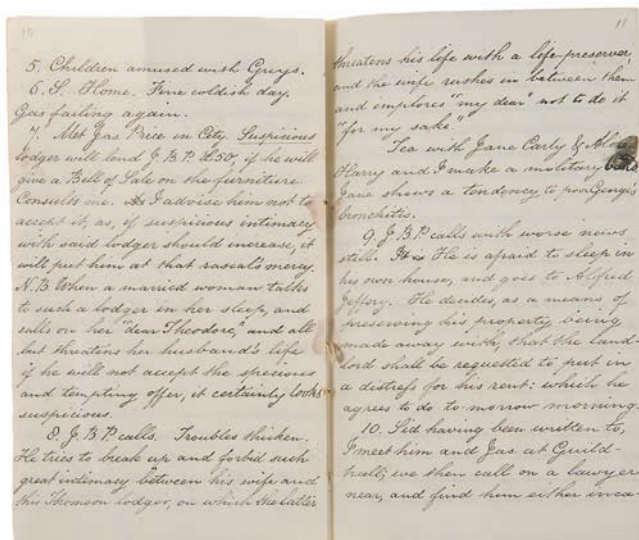 10
5. Children amused with Greys.
6. S. Home. Fine coldish day.
Gas failing again.
7. Met Jas Price in City. Suspicious
lodger will lend J. B. P. £50, if he will
give a Bill of Sale on the furniture.
Consults me. I advise him not to
accept it, as, if suspicious intimacy
with said lodger should increase, it
will put him at that rascal's mercy.
N.B. When a married woman talks
to such a lodger in her sleep, and
calls on her "dear Theodore," and all
but threatens her husband's life
if he will not accept the specious
and tempting offer, it certainly looks
suspicious.
8. J. B. P. calls. Troubles thicken.
He tries to break up and forbid such
great intimacy between his wife and
this Thomson lodger, on which the latter
11
threatens his life with a life-preserver,
and the wife rushes in between them
and implores "my dear" not to do it
"for my sake."
Tea with Jane Carly &
Harry and I make a military band
Jane shews a tendency to poor Georgie's
bronchitis.
9. J. B. P. calls with worse news
still. It is He is afraid to sleep in
his own house, and goes to Alfred
Jeffery. He decides, as a means of
preserving his property being
made away with, that the land-
lord shall be requested to put in
a distress for his rent: which he
agrees to do to morrow morning.
10. Sid having been written to,
I meet him and Jas. at Guild-
hall; we then call on a lawyer
near, and find him either inca-